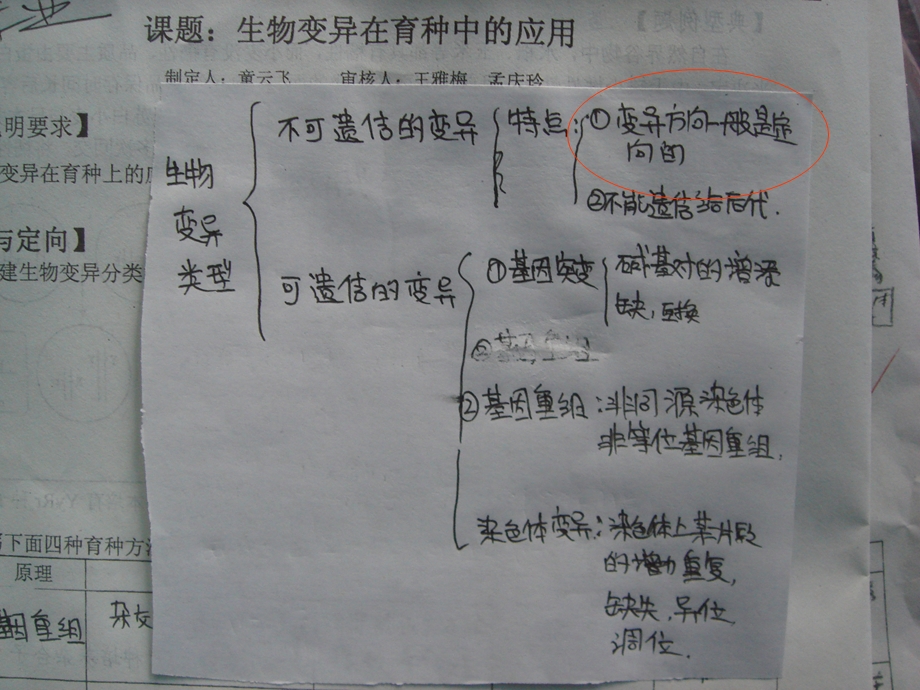 课题：生物变异在育种中的应用
制定人：童云飞 审核人：王雅梅 孟庆玲
明要求】
变异在育种上的应
与定向】
建生物变异分类
生物
变异
类型
不可遗信的变异
特点：
①变异方向一般是定
向的
②不能遗信给后代.
可遗信的变异
①基因突变
碱基对的增添
缺，互换
②基因重组：非同源染色体
非等位基因重组.
染色体变异：染色体上某片段
的增加重复，
缺失，异位
调位.
下面四种育种方法
原理
基因重组
杂交